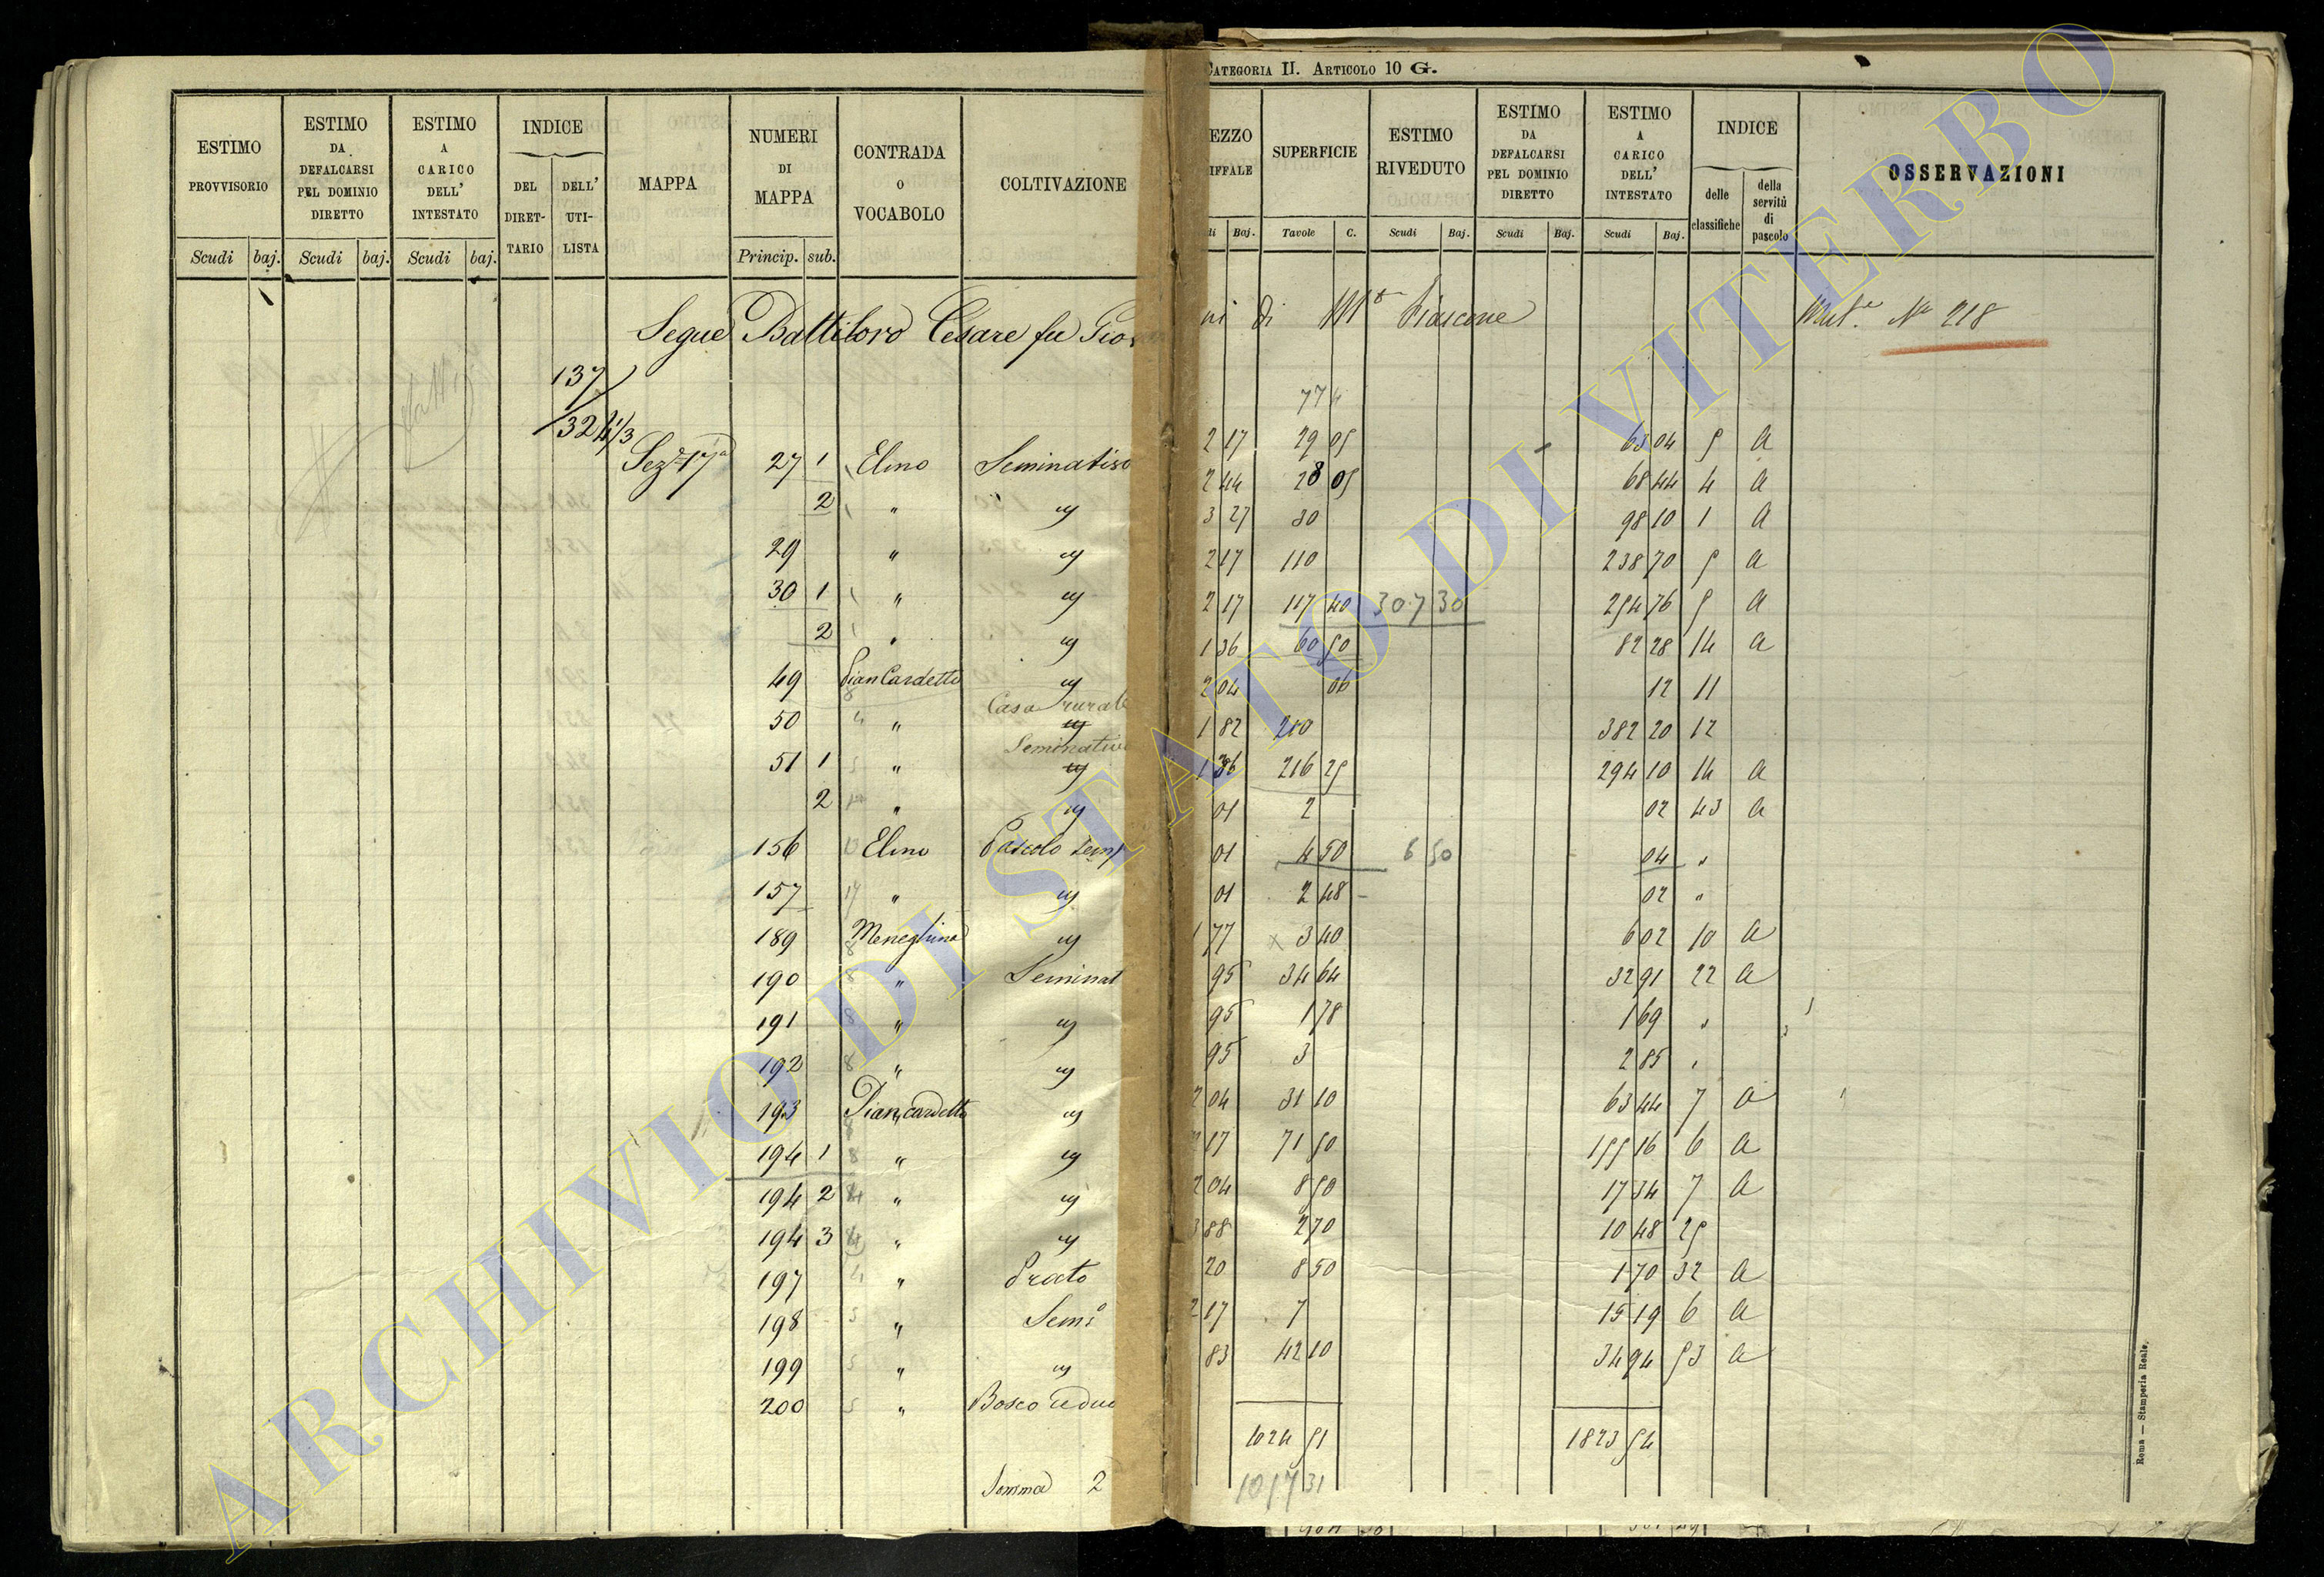 CATEGORIA II. ARTICOLO 10 G.
ESTIMO PROVVISORIO | ESTIMO DA DEFALCARSI PEL DOMINIO DIRETTO | ESTIMO A CARICO DELL' INTESTATO | INDICE DEL DIRET-TARIO | DELL' UTI-LISTA | MAPPA | NUMERI DI MAPPA | CONTRADA O VOCABOLO | COLTIVAZIONE
Scudi | baj. | Scudi | baj. | Scudi | baj. | Princip. | sub.
Segue Battiloro Cesare fu Gio
137
324 1/3
Sez.e 17a 27 1 Elino Seminativo
2 " "
29 " "
30 1 " "
2 " "
49 Pian Cardetto "
Casa rurale
50 " "
Seminativo
51 1 " "
2 " "
156 Elino Pascolo semp
157 " "
189 Meneghino "
190 " Seminat
191 " "
192 " "
193 Piancardetto "
194 1 " "
194 2 " "
194 3 " "
197 " Prato
198 " Sem:o
199 " "
200 " Bosco ceduo
Somma 2
EZZO IFFALE | SUPERFICIE | ESTIMO RIVEDUTO | ESTIMO DA DEFALCARSI PEL DOMINIO DIRETTO | ESTIMO A CARICO DELL' INTESTATO | INDICE delle classifiche | della servitù di pascolo | OSSERVAZIONI
di | Baj. | Tavole | C. | Scudi | Baj. | Scudi | Baj. | Scudi | Baj.
ni di M.te Fiascone Mut.e No 218
774
2 17 29 05 63 04 5 A
2 44 28 05 68 44 4 A
3 27 30 98 10 1 A
2 17 110 238 70 5 A
2 17 117 40 307 30 254 76 5 A
1 36 60 50 82 28 14 A
2 04 06 12 11
1 82 210 382 20 12
1 36 216 25 294 10 14 A
01 2 02 43 A
01 4 50 6 50 04 "
01 2 48 02 "
1 77 3 40 6 02 10 A
95 34 64 32 91 22 A
95 1 78 1 69 "
95 3 2 85 "
2 04 31 10 63 44 7 A
2 17 71 50 155 16 6 A
2 04 8 50 17 34 7 A
3 88 2 70 10 48 25
20 8 50 1 70 32 A
2 17 7 15 19 6 A
83 42 10 34 94 53 A
1024 51 1823 54
1017 31
Roma — Stamperia Reale.
ARCHIVIO DI STATO DI VITERBO